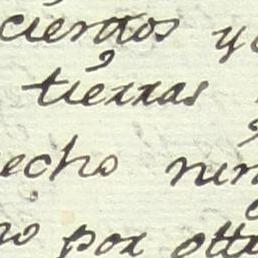 cientos y
tierras
echo nin
no por otto